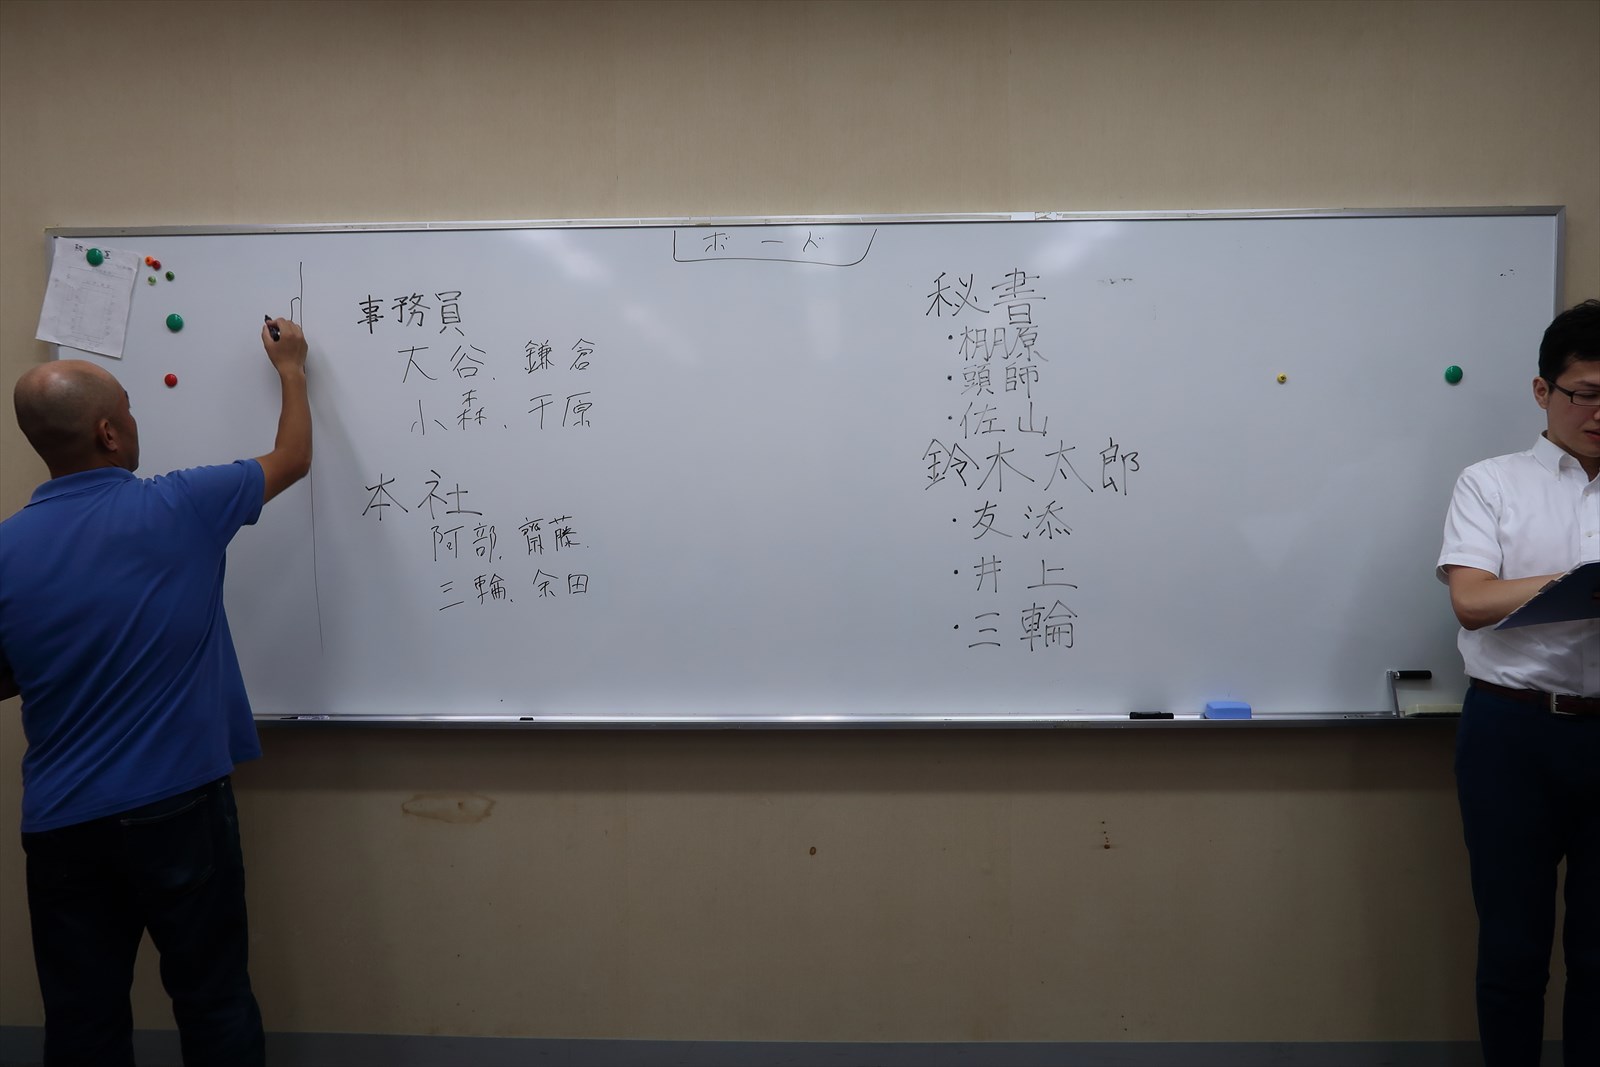 ボード
事務員
大谷、鎌倉
小森、干原
本社
阿部、齋藤、
三輪、余田
秘書
・棚原
・頭師
・佐山
鈴木太郎
・友添
・井上
・三輪